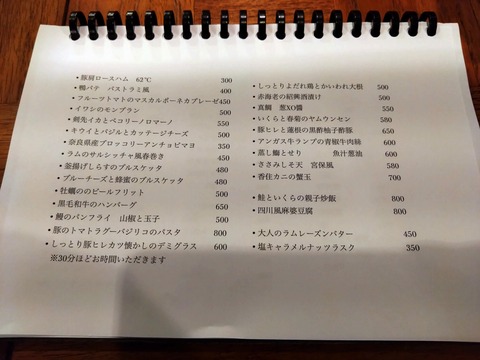 •豚肩ロースハム 62℃ 300
•鴨パテ パストラミ風 400
•フルーツトマトのマスカルポーネカプレーゼ450
•イワシのモンブラン 500
•剣先イカとペコリーノロマーノ 550
•キウイとバジルとカッテージチーズ 500
•奈良県産ブロッコリーアンチョビマヨ 350
•ラムのサルシッチャ風春巻き 450
•釜揚げしらすのブルスケッタ 480
•ブルーチーズと蜂蜜のブルスケッタ 480
•牡蠣ののビールフリット 500
•黒毛和牛のハンバーグ 650
•鰻のパンフライ 山椒と玉子 500
•豚のトマトラグーバジリコのパスタ 800
•しっとり豚ヒレカツ懐かしのデミグラス 600
※30分ほどお時間いただきます
•しっとりよだれ鶏とかいわれ大根 500
•赤海老の紹興酒漬け 500
•真鯛 葱XO醤 550
•いくらと春菊のヤムウンセン 580
•豚ヒレと蓮根の黒酢柚子酢豚 650
•アンガス牛ランプの青椒牛肉絲 680
•蒸し鰤とせり 魚汁葱油 600
•ささみしそ天 宮保風 580
•香住カニの蟹玉 700
•鮭といくらの親子炒飯 800
•四川風麻婆豆腐 800
•大人のラムレーズンバター 450
•塩キャラメルナッツラスク 350